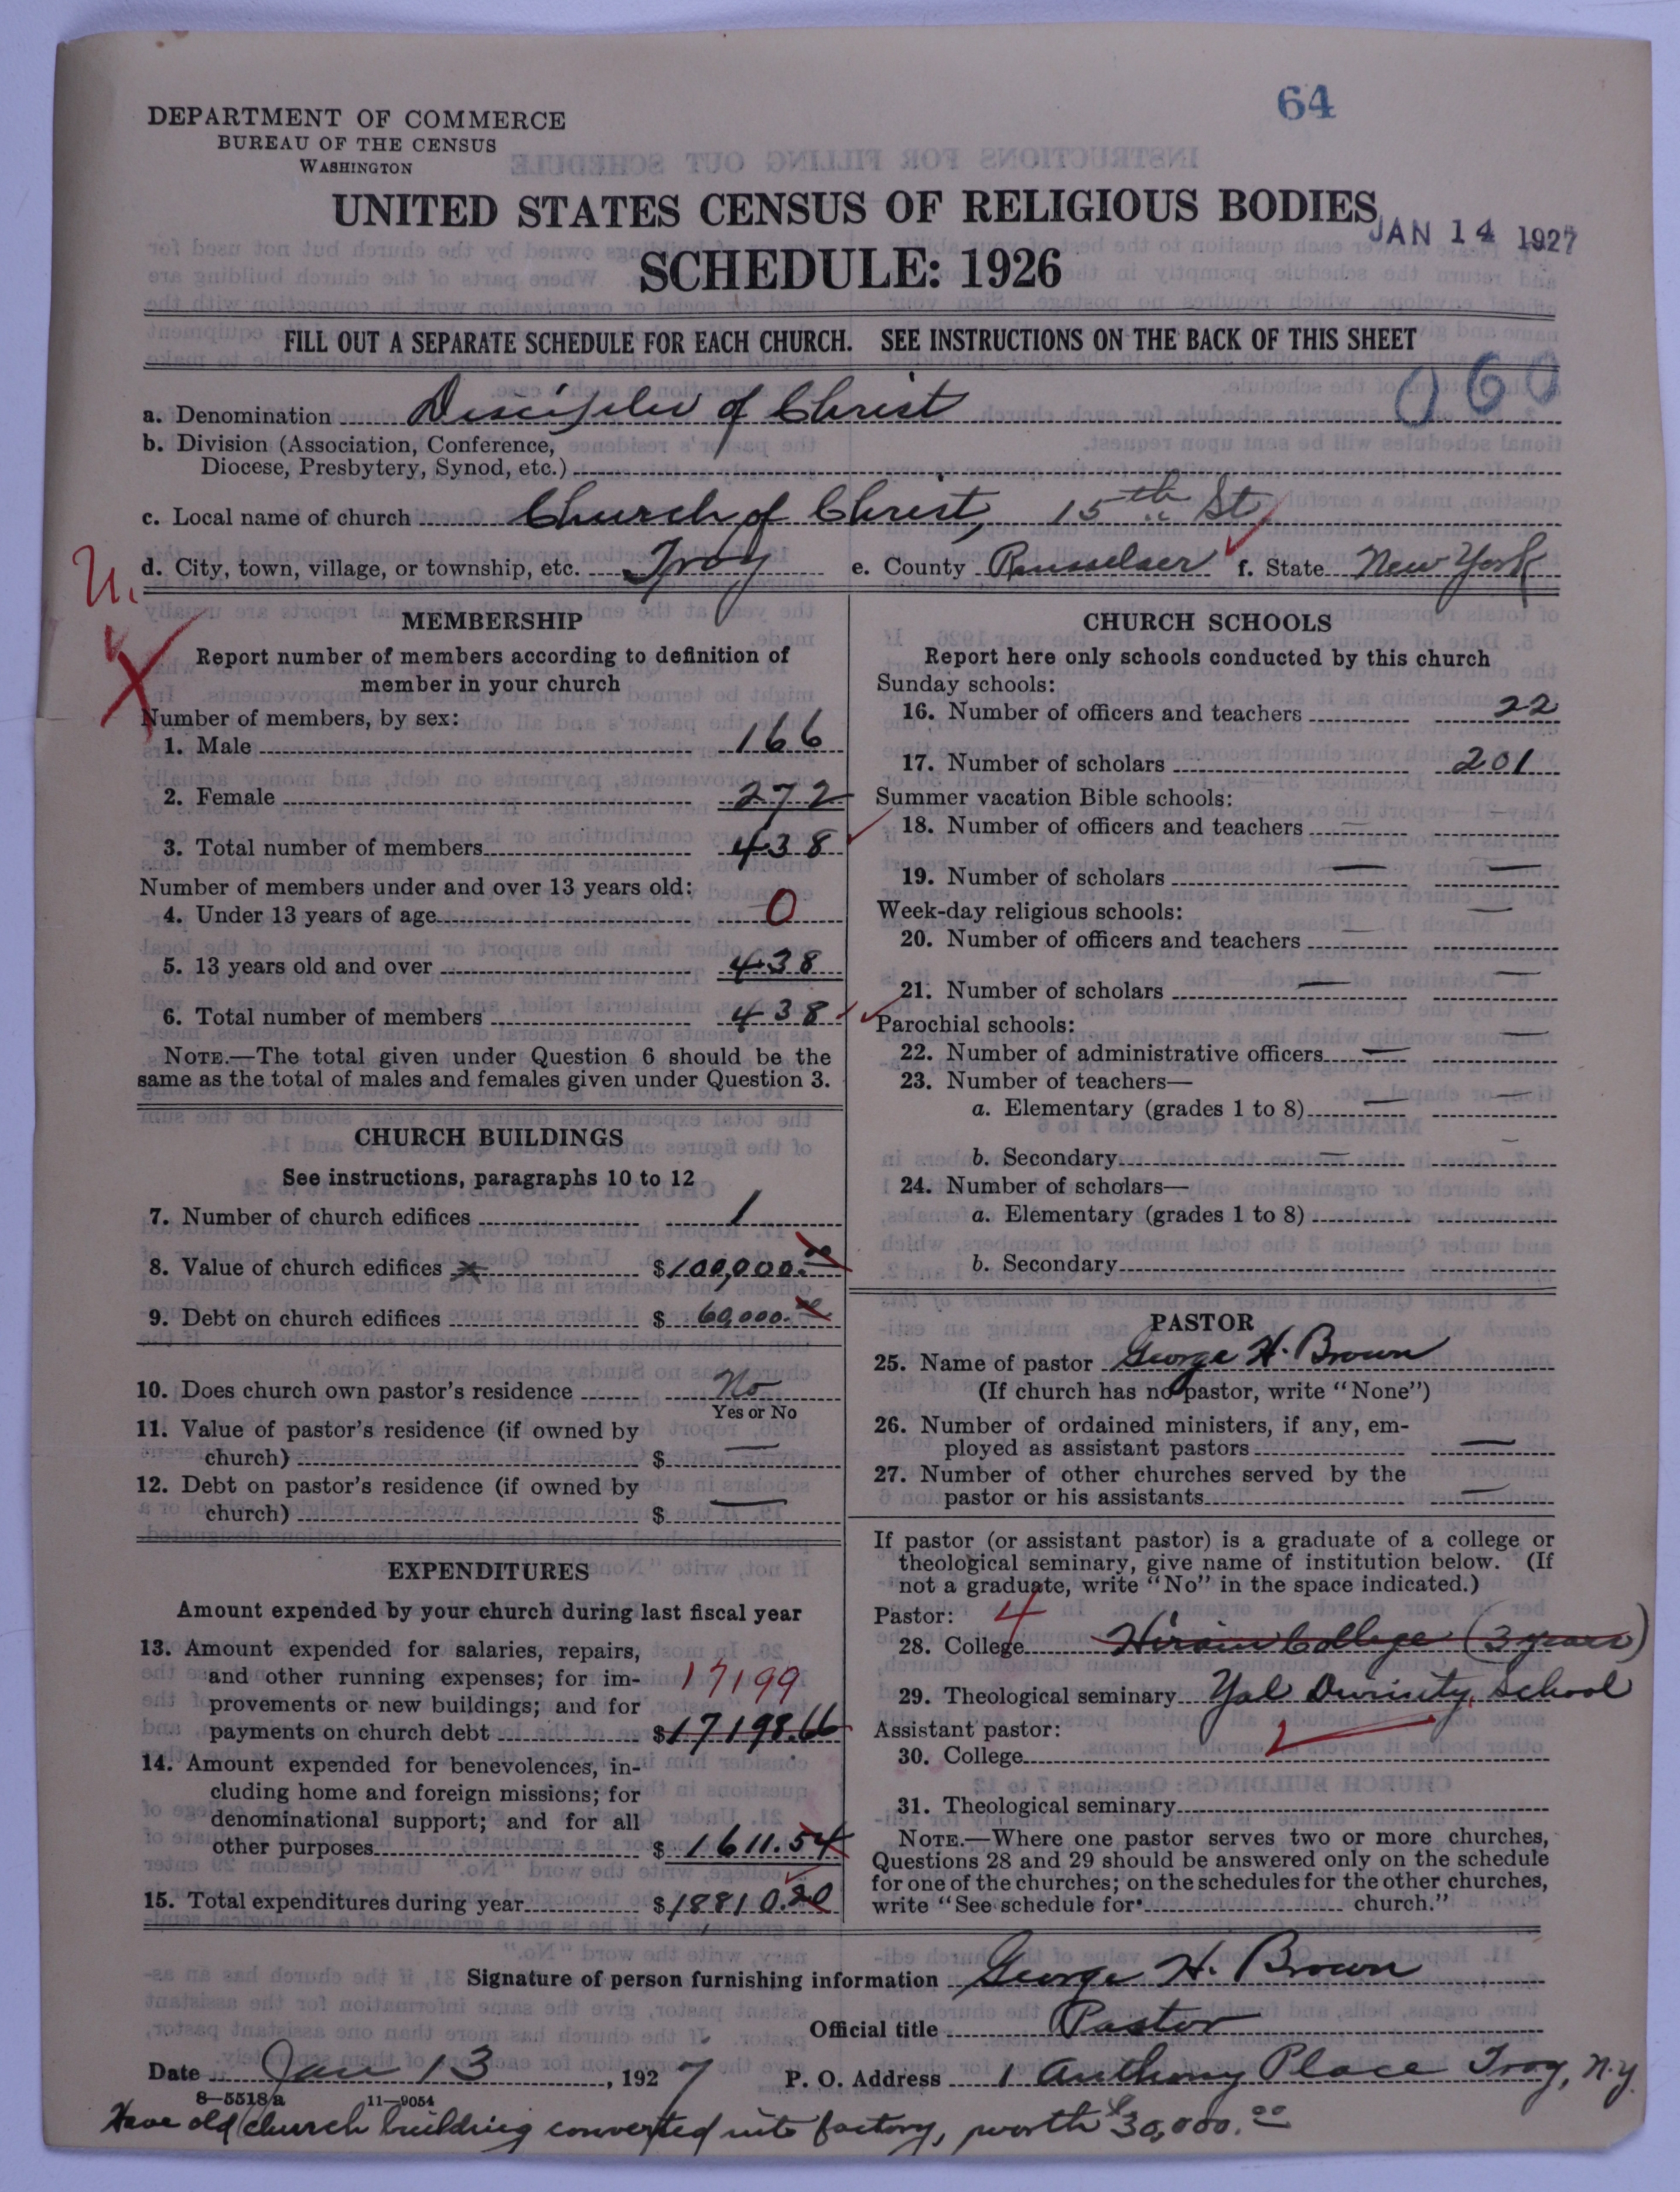 64
DEPARTMENT OF COMMERCE
BUREAU OF THE CENSUS
WASHINGTON
UNITED STATES CENSUS OF RELIGIOUS BODIES
JAN 14 1927
SCHEDULE: 1926
FILL OUT A SEPARATE SCHEDULE FOR EACH CHURCH. SEE INSTRUCTIONS ON THE BACK OF THIS SHEET
060
a. Denomination Disciples of Christ
b. Division (Association, Conference,
Diocese, Presbytery, Synod, etc.)
c. Local name of church Church of Christ, 15th St
d. City, town, village, or township, etc. Troy e. County Rensselaer f. State New York
MEMBERSHIP
Report number of members according to definition of
member in your church
Number of members, by sex:
1. Male 166
2. Female 272
3. Total number of members 438
Number of members under and over 13 years old:
4. Under 13 years of age 0
5. 13 years old and over 438
6. Total number of members 438
NOTE.—The total given under Question 6 should be the
same as the total of males and females given under Question 3.
CHURCH BUILDINGS
See instructions, paragraphs 10 to 12
7. Number of church edifices 1
8. Value of church edifices $100,000.00
9. Debt on church edifices $ 60,000.00
10. Does church own pastor's residence No
Yes or No
11. Value of pastor's residence (if owned by
church) $ —
12. Debt on pastor's residence (if owned by
church) $ —
EXPENDITURES
Amount expended by your church during last fiscal year
13. Amount expended for salaries, repairs,
and other running expenses; for im- 17199
provements or new buildings; and for
payments on church debt $17198.66
14. Amount expended for benevolences, in-
cluding home and foreign missions; for
denominational support; and for all
other purposes $ 1611.54
15. Total expenditures during year $18810.20
CHURCH SCHOOLS
Report here only schools conducted by this church
Sunday schools:
16. Number of officers and teachers 22
17. Number of scholars 201
Summer vacation Bible schools:
18. Number of officers and teachers —
19. Number of scholars — —
Week-day religious schools:
20. Number of officers and teachers — —
21. Number of scholars — —
Parochial schools:
22. Number of administrative officers — —
23. Number of teachers—
a. Elementary (grades 1 to 8) — —
b. Secondary — —
24. Number of scholars—
a. Elementary (grades 1 to 8)
b. Secondary
PASTOR
25. Name of pastor George H. Brown
(If church has no pastor, write "None")
26. Number of ordained ministers, if any, em-
ployed as assistant pastors —
27. Number of other churches served by the
pastor or his assistants —
If pastor (or assistant pastor) is a graduate of a college or
theological seminary, give name of institution below. (If
not a graduate, write "No" in the space indicated.)
Pastor: 4
28. College Hiram College (3 years)
29. Theological seminary Yal Divinity School
Assistant pastor:
30. College
31. Theological seminary
NOTE.—Where one pastor serves two or more churches,
Questions 28 and 29 should be answered only on the schedule
for one of the churches; on the schedules for the other churches,
write "See schedule for church."
Signature of person furnishing information George H. Brown
Official title Pastor
Date Jan 13, 1927 P. O. Address 1 Anthony Place Troy, N.Y.
8—5518a 11—9054
Have old church building converted into factory, worth $30,000.00